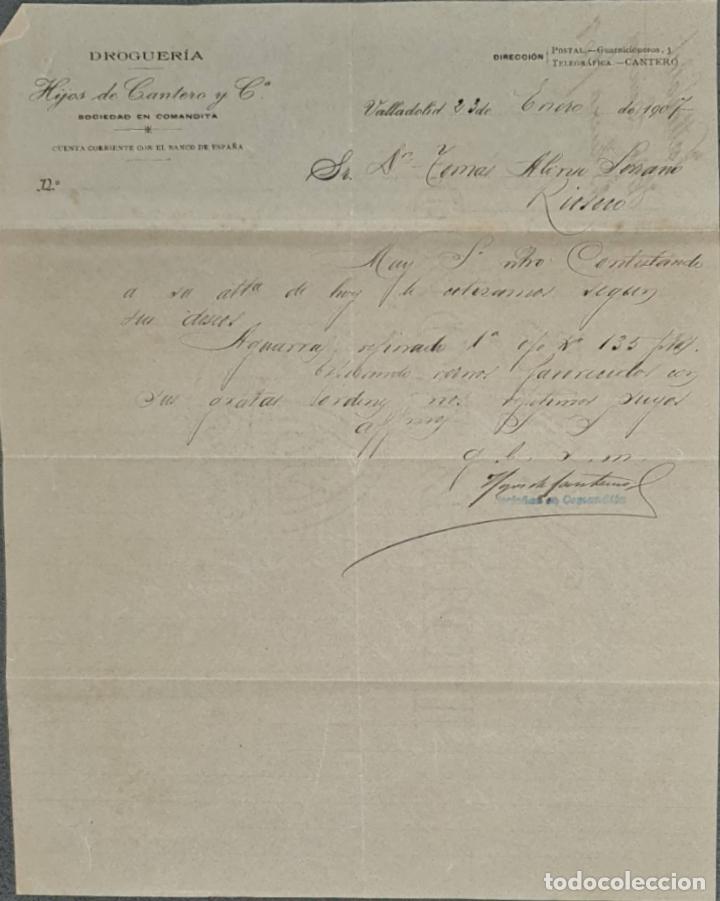 DROGUERÍA
Hijos de Cantero y Cª
SOCIEDAD EN COMANDITA
CUENTA CORRIENTE CON EL BANCO DE ESPAÑA
N.º
DIRECCIÓN POSTAL.—Guarnicioneros, 3
TELEGRÁFICA.—CANTERO
Valladolid 23 de Enero de 1907
Sr. Dn Tomás Alonso
Rioseco
Muy Sr ntro Contestando
a su atta de hoy le cotizamos segun
sus deseos
Aguarrás refinado 1ª 135 ptas.
vernos favorecidos con
sus gratas ordenes nos repetimos suyos
affmos S S
q. b. s. m.
Hijos de Cantero
Sociedad en Comandita
todocoleccion.net